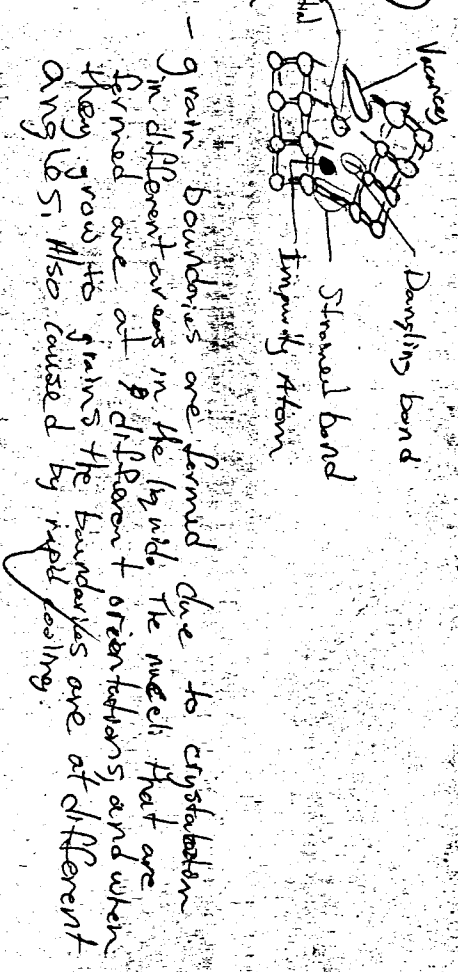 Vacancy
Dangling bond
Strained bond
Impurity Atom
- grain boundaries are formed due to
in different areas in the liquid. The nuclei that are
formed are at different orientations, and when
they grow to grains the boundaries are at different
angles. Also caused by rapid cooling.